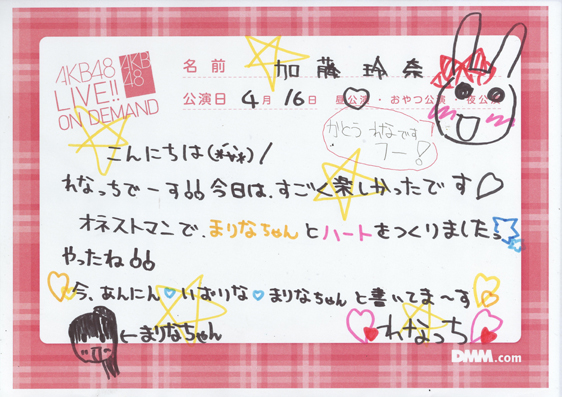 AKB48
LIVE!!
ON DEMAND
AKB
48
名前 加藤玲奈
公演日 4月 16日 昼公演・おやつ公演・夜公演
かとうれなです
フー!
こんにちは(*ˊᵕˋ*)/
れなっちでーす!! 今日は、すごく楽しかったです♡
オネストマンで、まりなちゃんとハートをつくりました
やったね!!
今、あんにん♡いずりな♡まりなちゃんと書いてま〜す
←まりなちゃん
れなっち
DMM.com